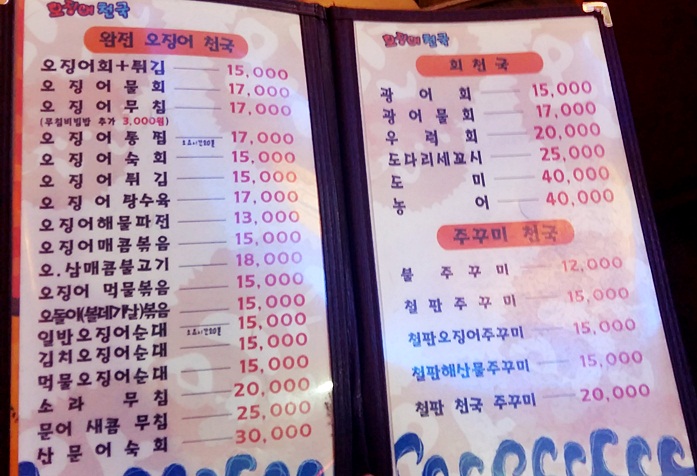 오징어 천국
완전 오징어 천국
오징어회+튀김 15,000
오 징 어 물 회 17,000
오 징 어 무 침 17,000
(무침비빔밥 추가 3,000원)
오 징 어 통 찜 17,000
오 징 어 숙 회 15,000
오 징 어 튀 김 15,000
오 징 어 탕수육 17,000
오징어해물파전 13,000
오징어매콤볶음 15,000
오.삼매콤불고기 18,000
오징어 먹물볶음 15,000
오돌이(볼테기살)볶음 15,000
일반오징어순대 15,000
김치오징어순대 15,000
먹물오징어순대 15,000
소 라 무 침 20,000
문어 새콤 무침 25,000
산 문 어 숙 회 30,000
오징어 천국
회 천 국
광 어 회 15,000
광 어 물 회 17,000
우 럭 회 20,000
도다리세꼬시 25,000
도 미 40,000
농 어 40,000
주꾸미 천국
불 주 꾸 미 12,000
철 판 주 꾸 미 15,000
철판오징어주꾸미 15,000
철판해산물주꾸미 15,000
철판 천국 주꾸미 20,000